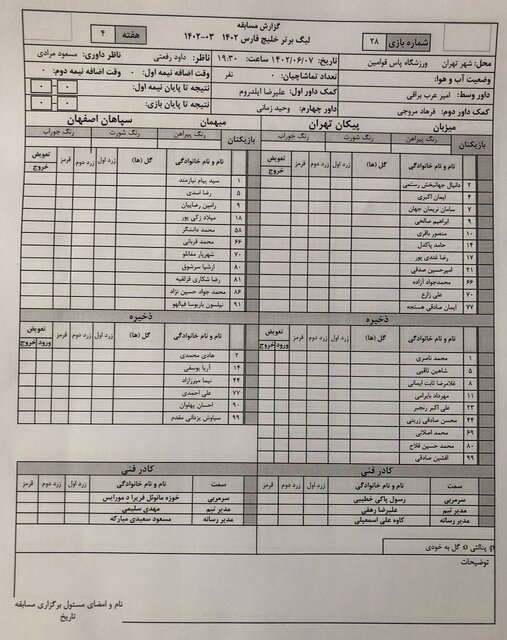 گزارش مسابقه
لیگ برتر خلیج فارس ۱۴۰۲ ۰۳-۱۴۰۲
شماره بازی ۲۸
هفته ۴
محل: شهر تهران ورزشگاه پاس قوامین تاریخ: ۱۴۰۲/۰۶/۰۷ ساعت: ۱۹:۳۰ ناظر: داود رفعتی ناظر داوری: مسعود مرادی
وضعیت آب و هوا: تعداد تماشاچیان: نفر وقت اضافه نیمه اول: ۰ وقت اضافه نیمه دوم: ۰
داور وسط: امیر عرب براقی کمک داور اول: علیرضا ایلدروم نتیجه تا پایان نیمه اول: ۰ - ۰
کمک داور دوم: فرهاد مروجی داور چهارم: وحید زمانی نتیجه تا پایان بازی: ۰ - ۰
میزبان پیکان تهران میهمان سپاهان اصفهان
بازیکنان رنگ پیراهن رنگ شورت رنگ جوراب
بازیکنان رنگ پیراهن رنگ شورت رنگ جوراب
نام و نام خانوادگی گل (ها) زرد اول زرد دوم قرمز تعویض خروج
۲ دانیال جهانبخش رستمی
۴ ایمان اکبری
۷ سامان نریمان جهان
۹ ابراهیم صالحی
۱۰ منصور باقری
۱۴ حامد پاکدل
۱۷ رضا غندی پور
۲۱ امیرحسین صدقی
۶۶ محمدجواد آزاده
۷۰ علی زارع
۷۷ ایمان صادقی هسنجه
نام و نام خانوادگی گل (ها) زرد اول زرد دوم قرمز تعویض خروج
۱ سید پیام نیازمند
۵ رضا اسدی
۹ رامین رضاییان
۱۸ میلاد زکی پور
۵۸ محمد دانشگر
۶۶ محمد قربانی
۷۰ شهریار مغانلو
۸۰ ارشیا سرشوق
۸۱ رضا شکاری قزلقیه
۸۶ محمد جواد حسین نژاد
۹۱ نیلسون باربوسا فیالهو
ذخیره
نام و نام خانوادگی گل (ها) زرد اول زرد دوم قرمز تعویض ورود خروج
۱ محمد ناصری
۵ شاهین ثاقبی
۸ غلامرضا ثابت ایمانی
۱۱ مهرداد بایرامی
۲۳ علی اکبر رنجبر
۴۴ محسن صادقی زرینی
۶۹ محمد اصلانی
۸۰ محمد حسین فلاح
۹۹ افشین صادقی
ذخیره
نام و نام خانوادگی گل (ها) زرد اول زرد دوم قرمز تعویض ورود خروج
۲ هادی محمدی
۱۴ آریا یوسفی
۴۴ نیما میرزازاد
۷۷ علی احمدی
۹۰ احسان پهلوان
۹۹ سیاوش یزدانی مقدم
کادر فنی
سمت نام و نام خانوادگی زرد اول زرد دوم قرمز
سرمربی رسول پاکی خطیبی
مدیر تیم علیرضا رهقی
مدیر رسانه کاوه علی اسمعیلی
کادر فنی
سمت نام و نام خانوادگی زرد اول زرد دوم قرمز
سرمربی خوزه مانوئل فریرا د مورایس
مدیر تیم مهدی سلیمی
مدیر رسانه مسعود سعیدی مبارکه
p: پنالتی o: گل به خودی
توضیحات
نام و امضای مسئول برگزاری مسابقه
تاریخ